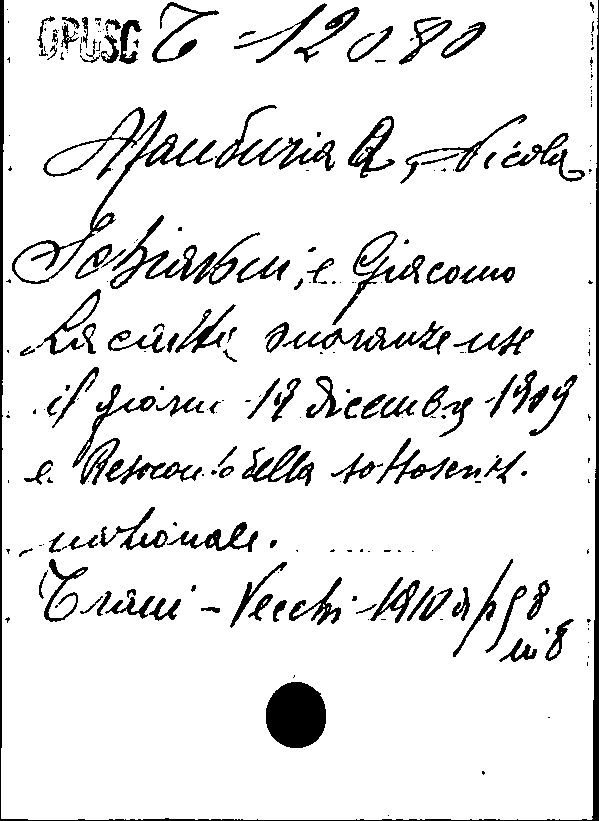 OPUSC T = 120.80
Manduria A, Nicola
Schiavoni, e Giacomo
Lacaita onoranze rese
il giorno 19 dicembre 1909
e Resoconto della sottoscriz.
nazionale.
Trani - Vecchi 1910 pg 8
in 8